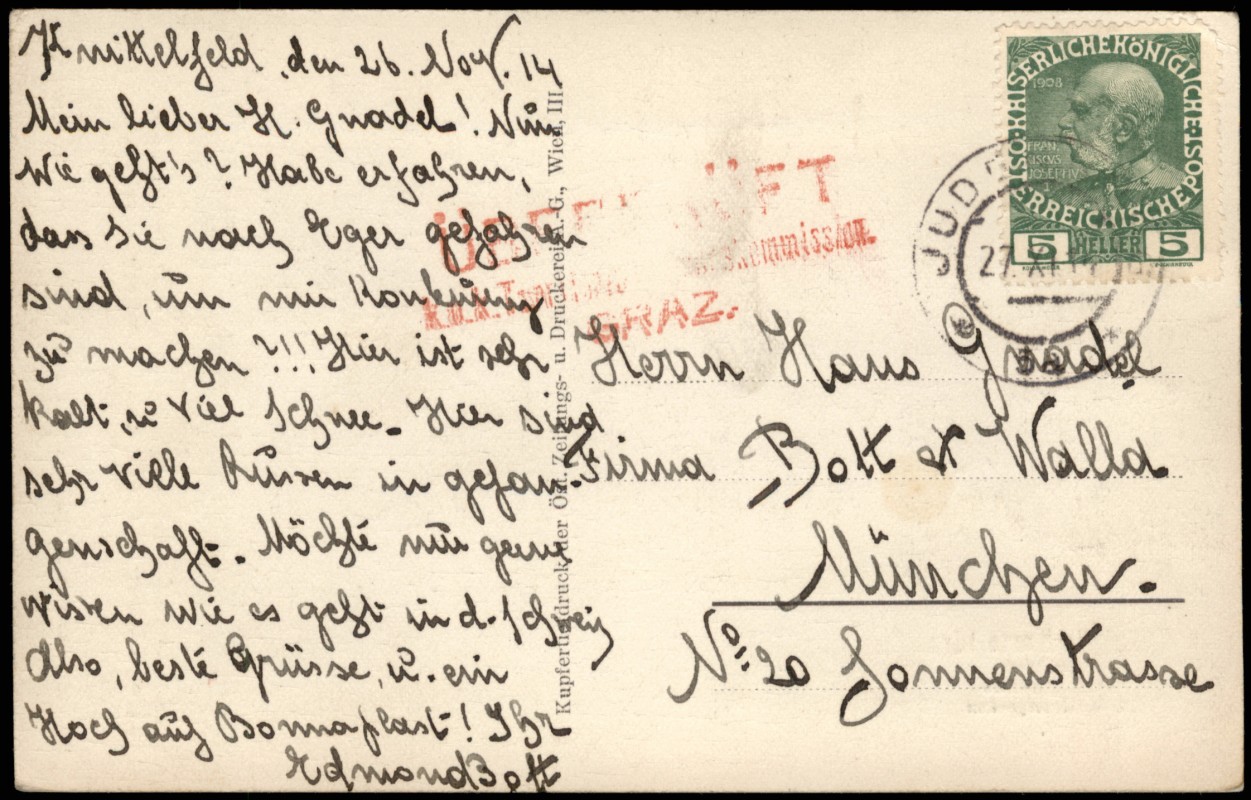 Knittelfeld, den 26. Nov. 14
Mein lieber H. Gnadel! Nun
Wie geht's? Habe erfahren,
dass Sie nach Eger gefahren
sind, um mir Konkurenz
zu machen?!!! Hier ist sehr
kalt, u viel Schnee. Hier sind
sehr viele Russen in gefan-
genschaft. Möchte nun gerne
wissen wie es geht in d. Schweiz
Also, beste Grüsse, u. ein
Hoch auf Bonnaplast! Ihr
Edmond Bott
Kupfertiefdruck der Öst. Zeitungs- u. Druckerei A.-G., Wien, III
ÜBERPRÜFT
kommission.
GRAZ.
KAISERLICHE KÖNIGLICHE ÖSTERREICHISCHE POST
1908
FRAN
CISCVS
JOSEPHVS
I
5 HELLER 5
JUD
27. XI. 14
Herrn Hans Gnadel
Firma Bott & Walla
München.
No. 20 Sonnenstrasse